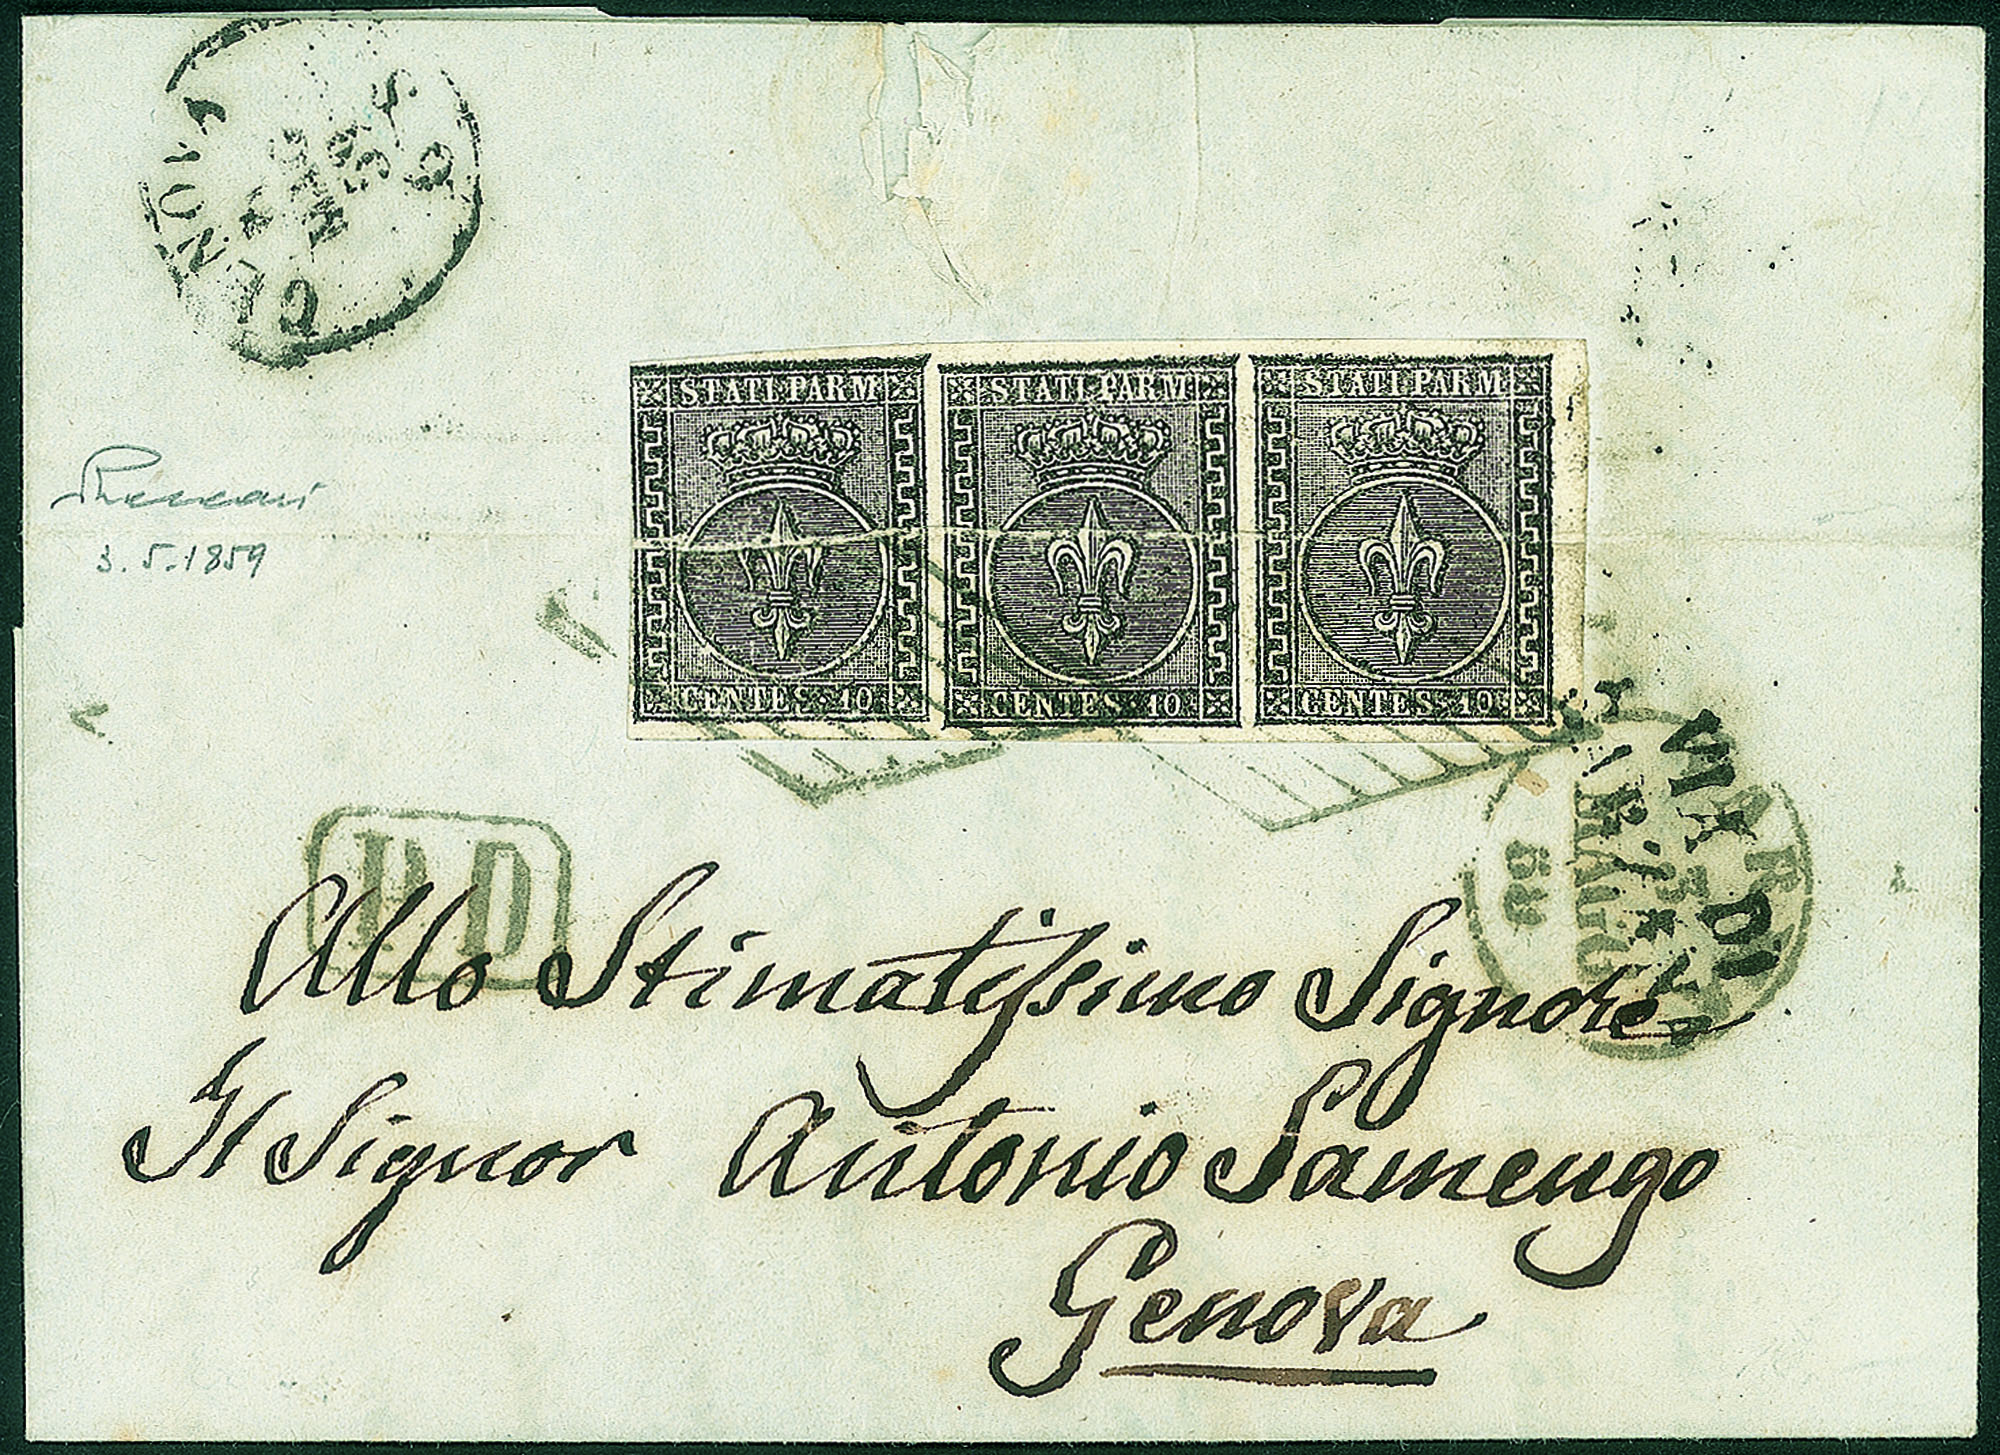 GENOVA
5 9
59
M
STATI PARM
CENTES. 10
STATI PARM
CENTES. 10
STATI PARM
CENTES. 10
3. 5. 1859
P.D
Allo Stimatissimo Signore
Il Signor Antonio Samengo
Genova